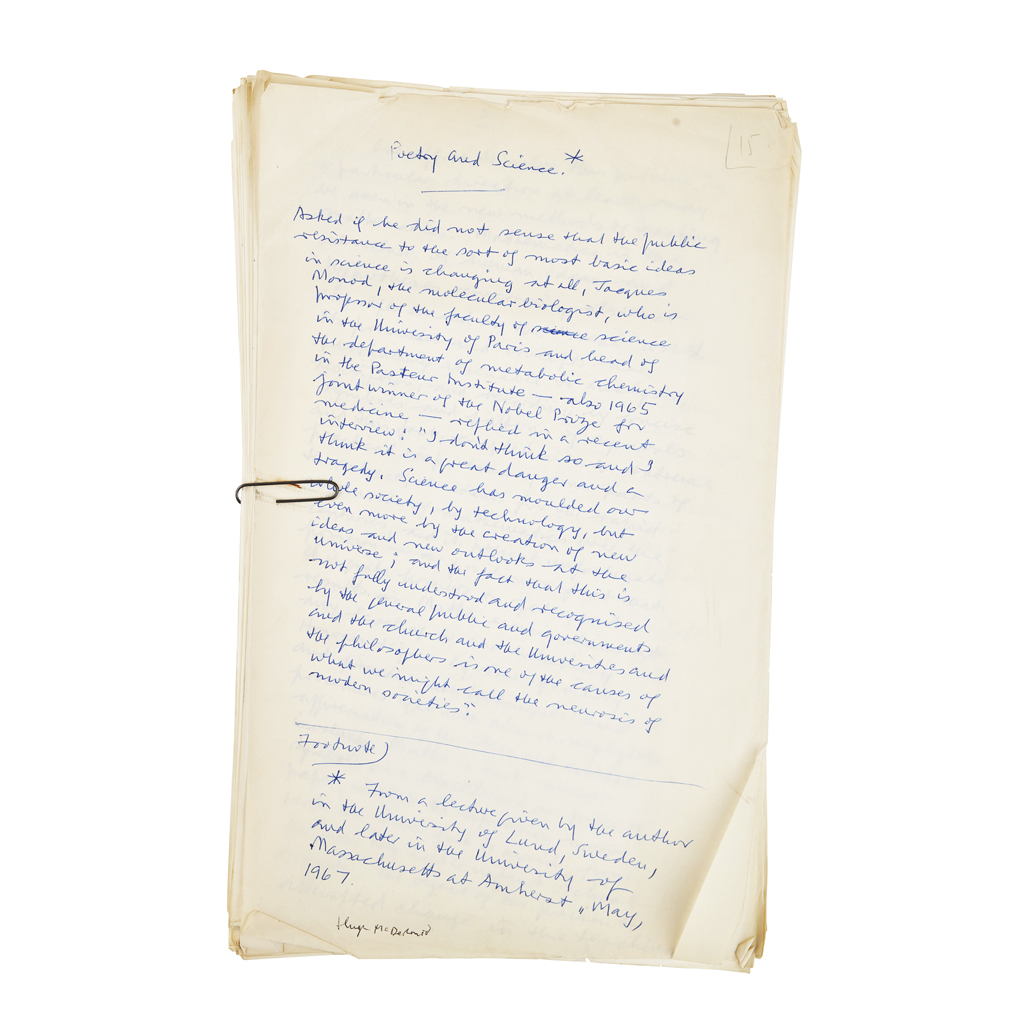 15
Poetry and Science.*
Asked if he did not sense that the public
resistance to the sort of most basic ideas
in science is changing at all, Jacques
Monod, the molecular biologist, who is
professor of the faculty of science science
in the University of Paris and head of
the department of metabolic chemistry
in the Pasteur Institute — also 1965
joint winner of the Nobel Prize for
medicine — replied in a recent
interview: "I don't think so and I
think it is a great danger and a
tragedy. Science has moulded our
whole society, by technology, but
even more by the creation of new
ideas and new outlooks at the
universe; and the fact that this is
not fully understood and recognised
by the general public and governments
and the church and the Universities and
the philosophers is one of the causes of
what we might call the neurosis of
modern societies."
Footnote)
* From a lecture given by the author
in the University of Lund, Sweden,
and later in the University of
Massachusetts at Amherst, May,
1967.
Hugh McDiarmid